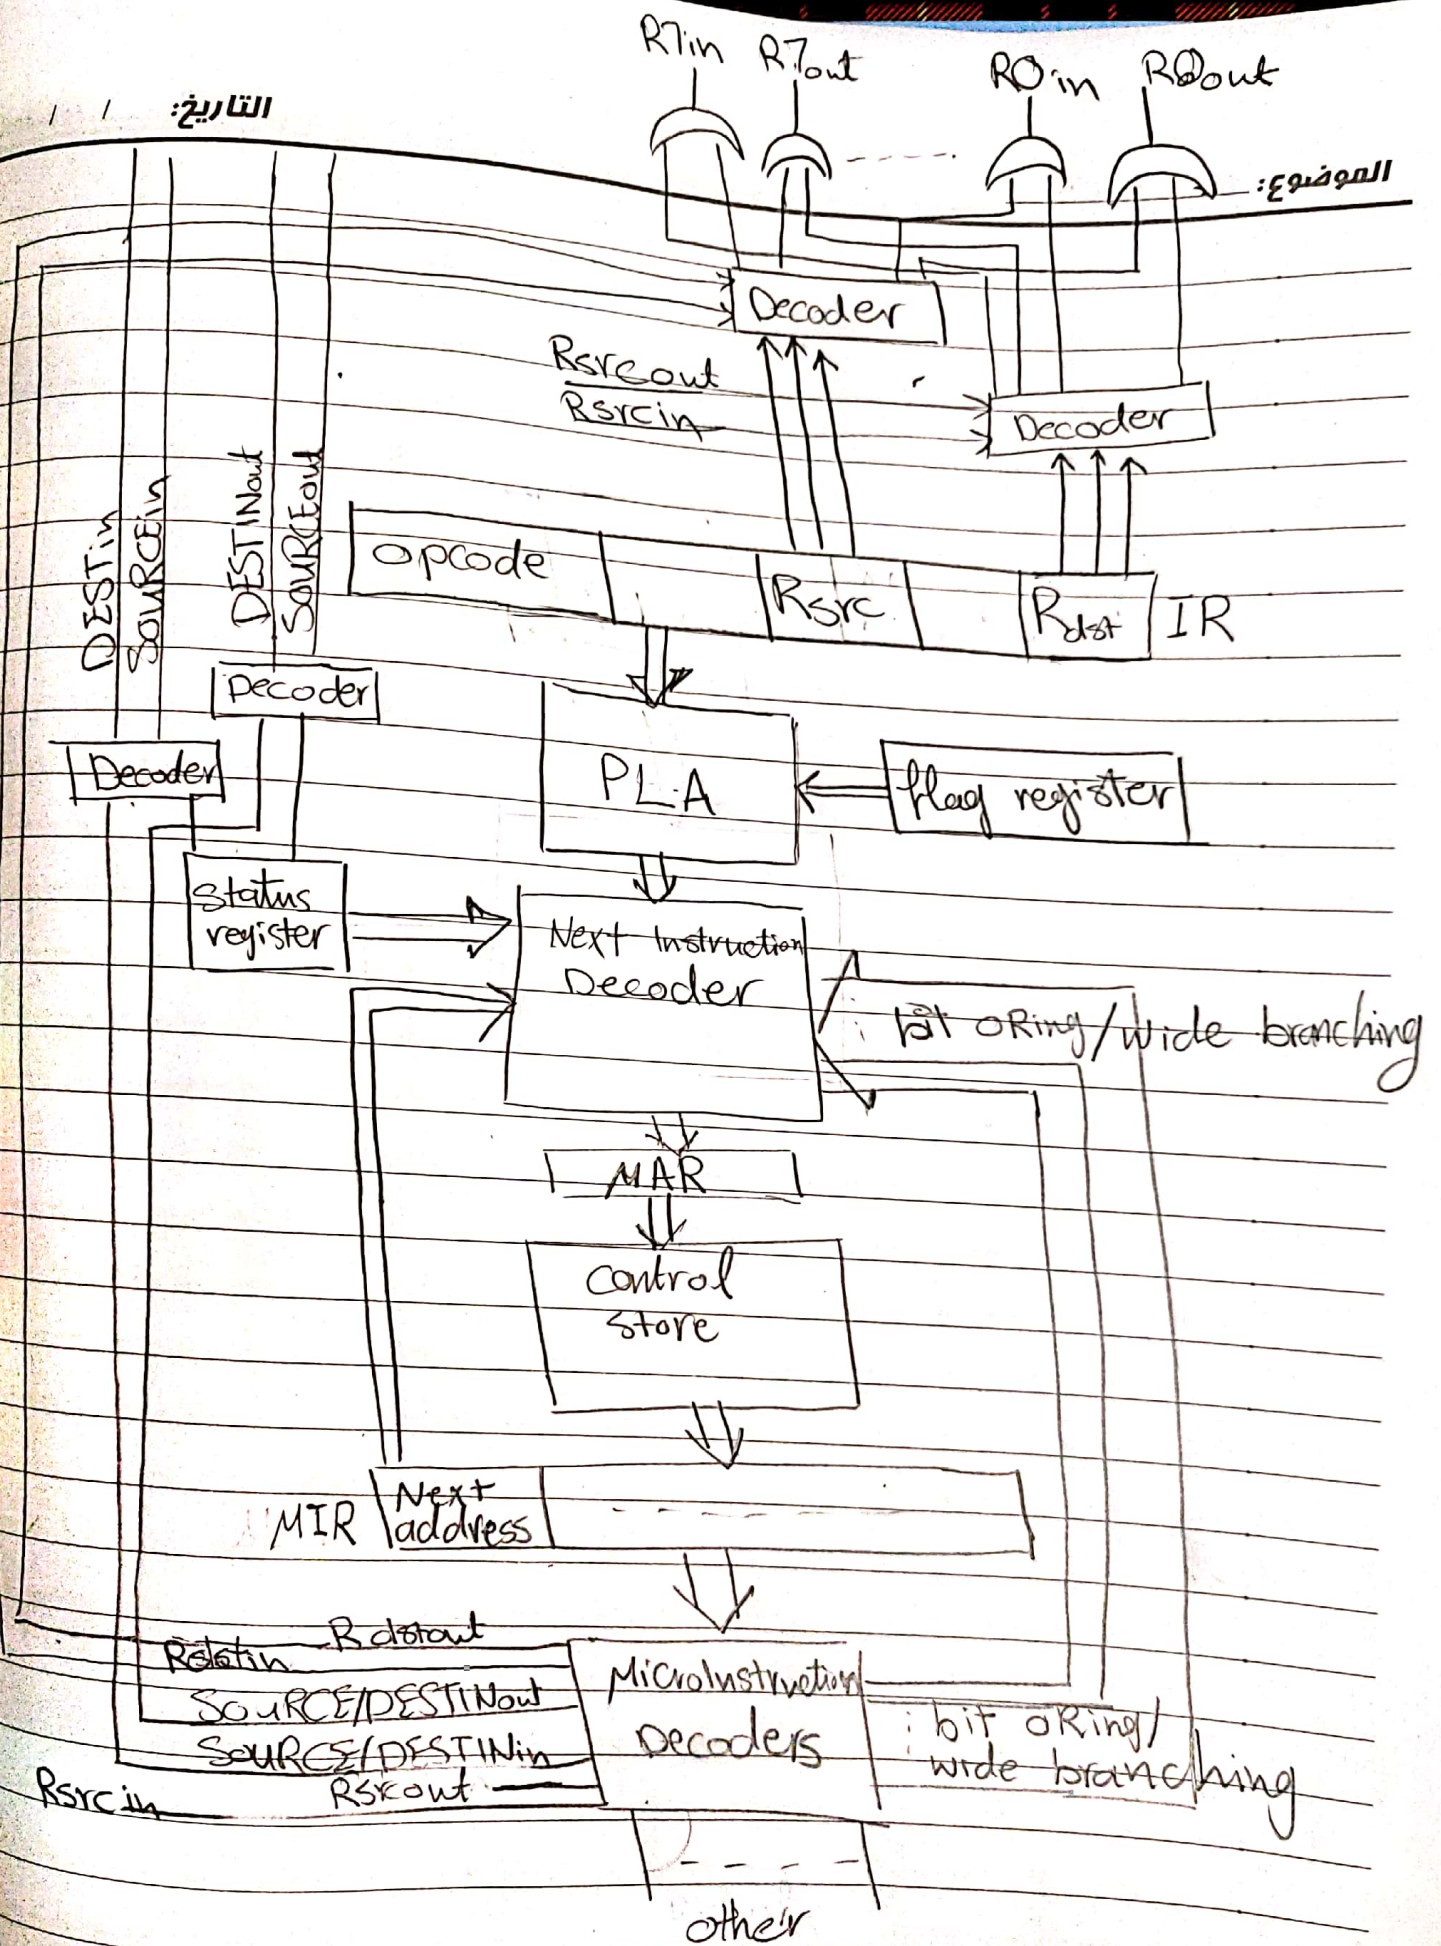 R7in R7out R0in R0out
التاريخ: / /
الموضوع:
Decoder
Rsrcout
Rsrcin
Decoder
DESTin
SOURCEin
DESTINout
SOURCEout
opcode Rsrc Rdst IR
Decoder
Decoder
PLA
flag register
Status
register
Next Instruction
Decoder
bit oRing/wide branching
MAR
Control
Store
MIR
Next
address
Rdstout
Rdstin
SOURCE/DESTINout
SOURCE/DESTINin
Rsrcout
Rsrcin
MicroInstruction
Decoders
bit oRing/
wide branching
other